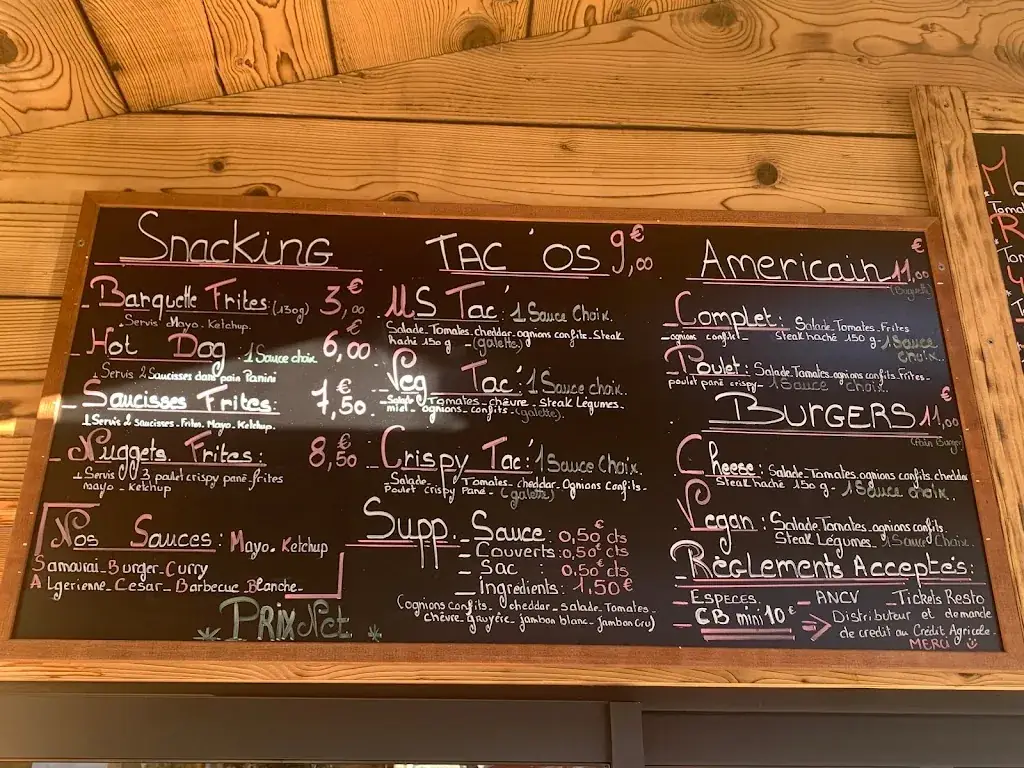 Snacking
Barquette Frites (130g) 3,00 €
Servis Mayo. Ketchup.
Hot Dog : 1 Sauce choix 6,00 €
1 Servis 2 Saucisses dans pain Panini
Saucisses Frites: 7,50 €
1 Servis 2 saucisses. Frites. Mayo. Ketchup.
Nuggets Frites: 8,50 €
1 Servis 3 poulet crispy pané.frites
mayo - ketchup
Nos Sauces: Mayo. Ketchup
Samourai-Burger-Curry
Algerienne-Cesar-Barbecue Blanche-
* Prix Net *
TAC'OS 9,00 €
US Tac': 1 Sauce Choix.
Salade-Tomates-cheddar-ognions confits-Steak
haché 150 g - (galette)
Veg Tac': 1 Sauce choix.
Salade Tomates - chèvre - Steak Légumes -
miel - ognions confits - (galette).
Crispy Tac': 1 Sauce Choix.
Salade - Tomates - cheddar - Ognions Confits -
Poulet Crispy Pané - (galette)
Supp. - Sauce : 0,50€ cts
- Couverts : 0,50€ cts
- Sac : 0,50€ cts
- Ingrédients : 1,50€
(ognions confits - cheddar - salade - Tomates -
chèvre - gruyère - jambon blanc - Jambon Cru)
Americain 11,00 €
(Baguette)
Complet: Salade-Tomates-Frites
-ognions confits- Steak haché 150 g - 1 Sauce
choix..
Poulet: Salade.Tomates.ognions confits.Frites-
poulet pané crispy- 1 Sauce choix.
Burgers 11,00 €
Cheese: Salade.Tomates.ognions confits.cheddar
Steak haché 150 g - 1 Sauce choix.
Vegan : Salade.Tomates.ognions confits.
Steak Légumes. 1 Sauce Choix.
Règlements Acceptés:
- Especes - ANCV - Tickets Resto
- CB mini 10€ => Distributeur et demande
de credit au Crédit Agricole.
MERCI
Tomat